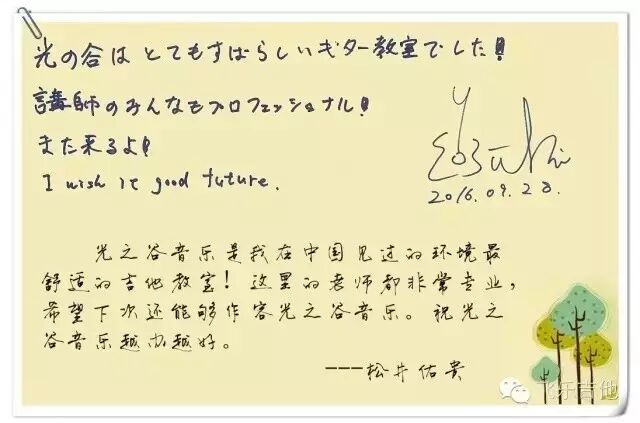 光の谷は とてもすばらしいギター教室でした!
講師のみんなもプロフェッショナル!
また来るよ!
I wish it good future.
2016.09.28.
光之谷音乐是我在中国见过的环境最
舒适的吉他教室!这里的老师都非常专业,
希望下次还能够作客光之谷音乐。祝光之
谷音乐越办越好。
---松井佑贵
飞乐吉他